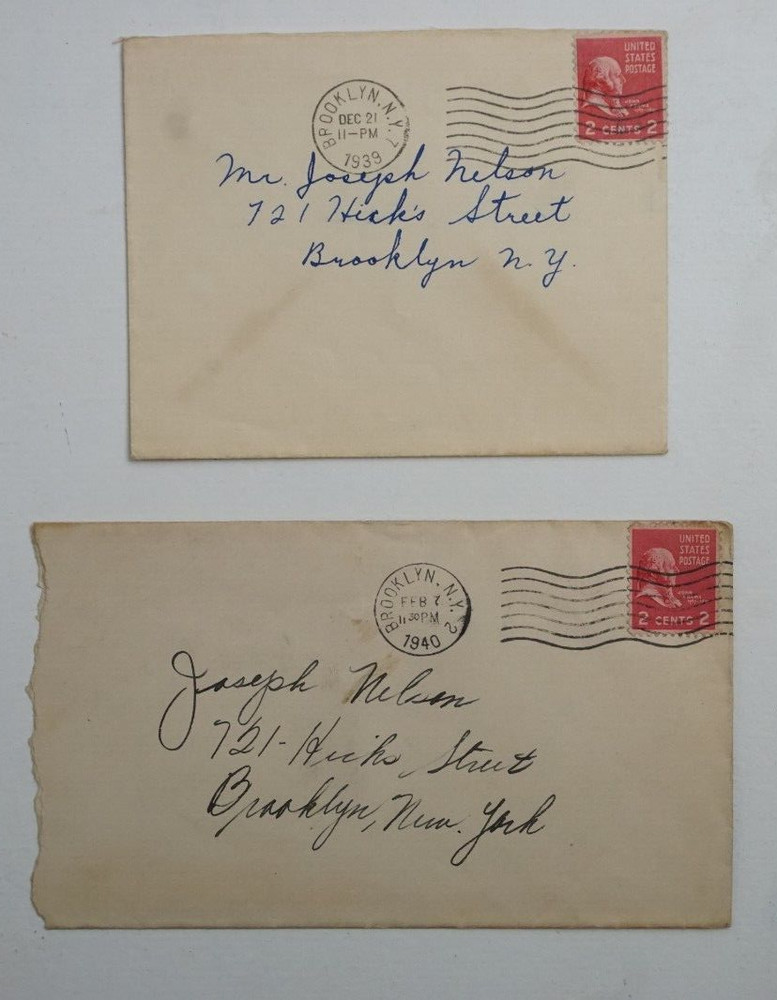 UNITED
STATES
POSTAGE
2 CENTS 2
BROOKLYN, N.Y. 7
DEC 21
11-PM
1939
Mr. Joseph Nelson
721 Hick's Street
Brooklyn N. Y.
UNITED
STATES
POSTAGE
2 CENTS 2
BROOKLYN, N.Y. 2
FEB 7
11 30 PM
1940
Joseph Nelson
721- Hicks Street
Brooklyn, New. York